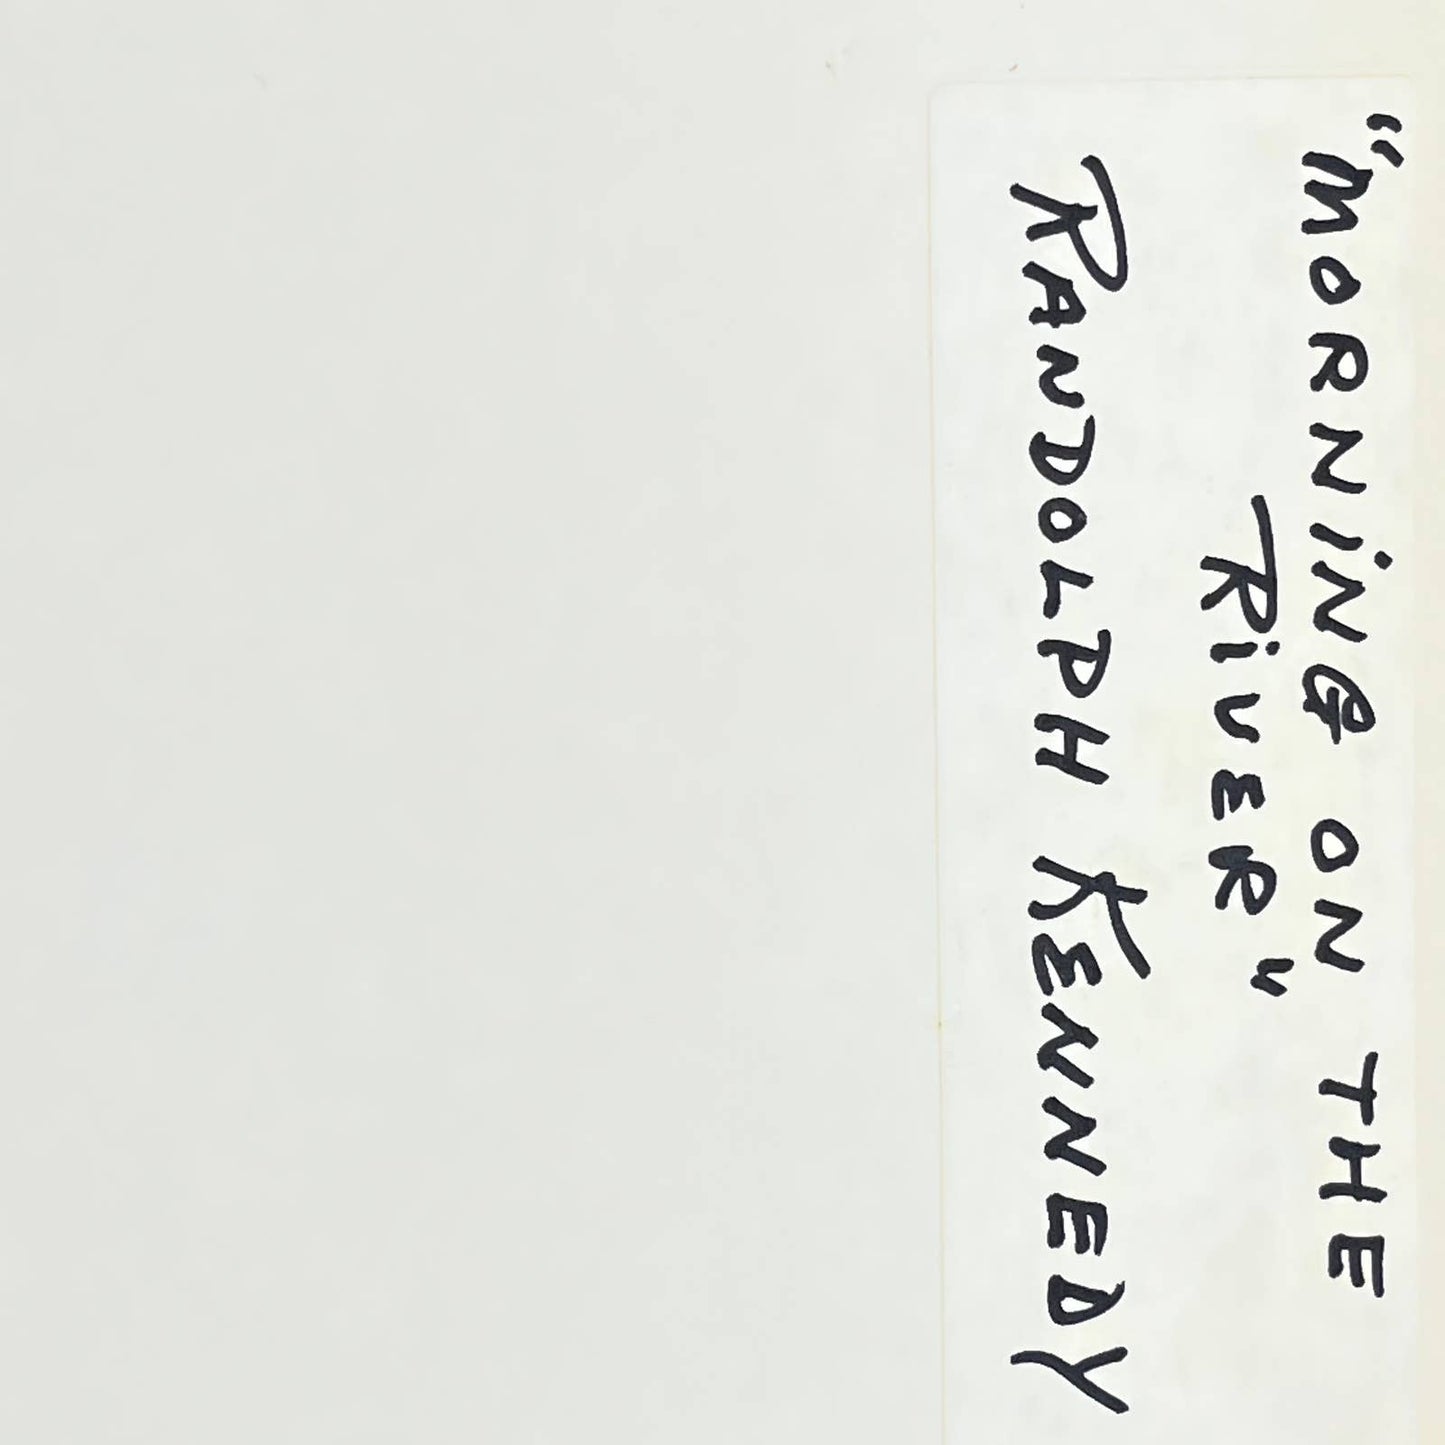 "MORNiNG ON THE
RiVER"
RANDOLPH KENNEDY